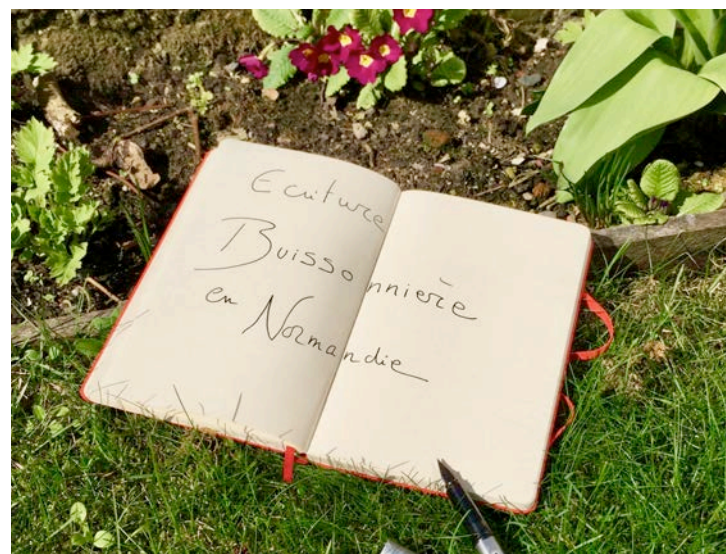 Ecriture
Buissonnière
en Normandie